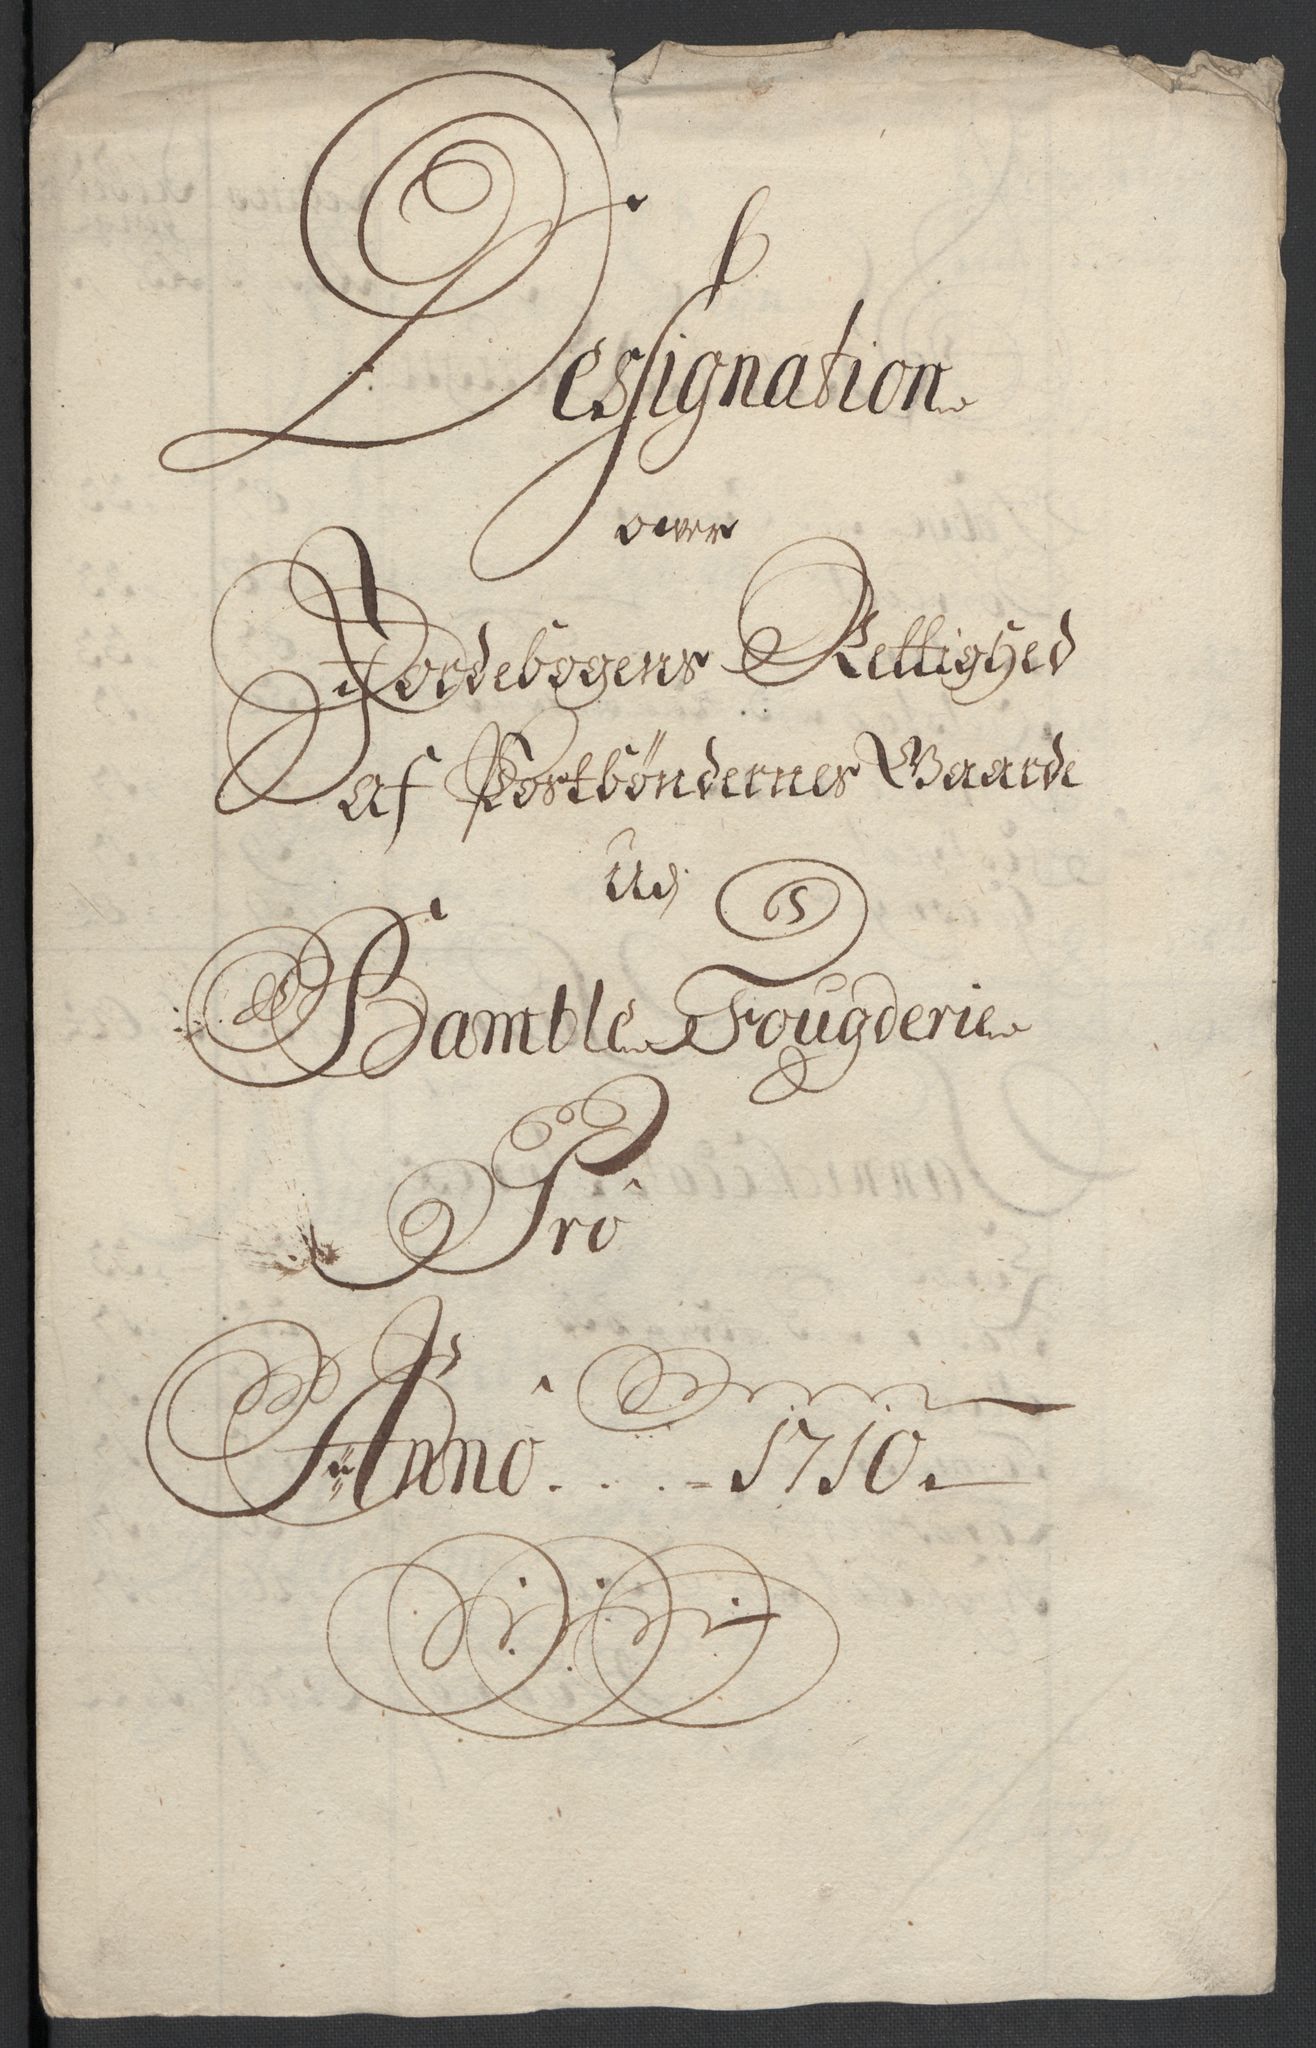 Dessignation
over
Jordebogens Rettighed
af Postbøndernes Gaarde
Udj
Bamble Fougderie
Pro
Anno 1710